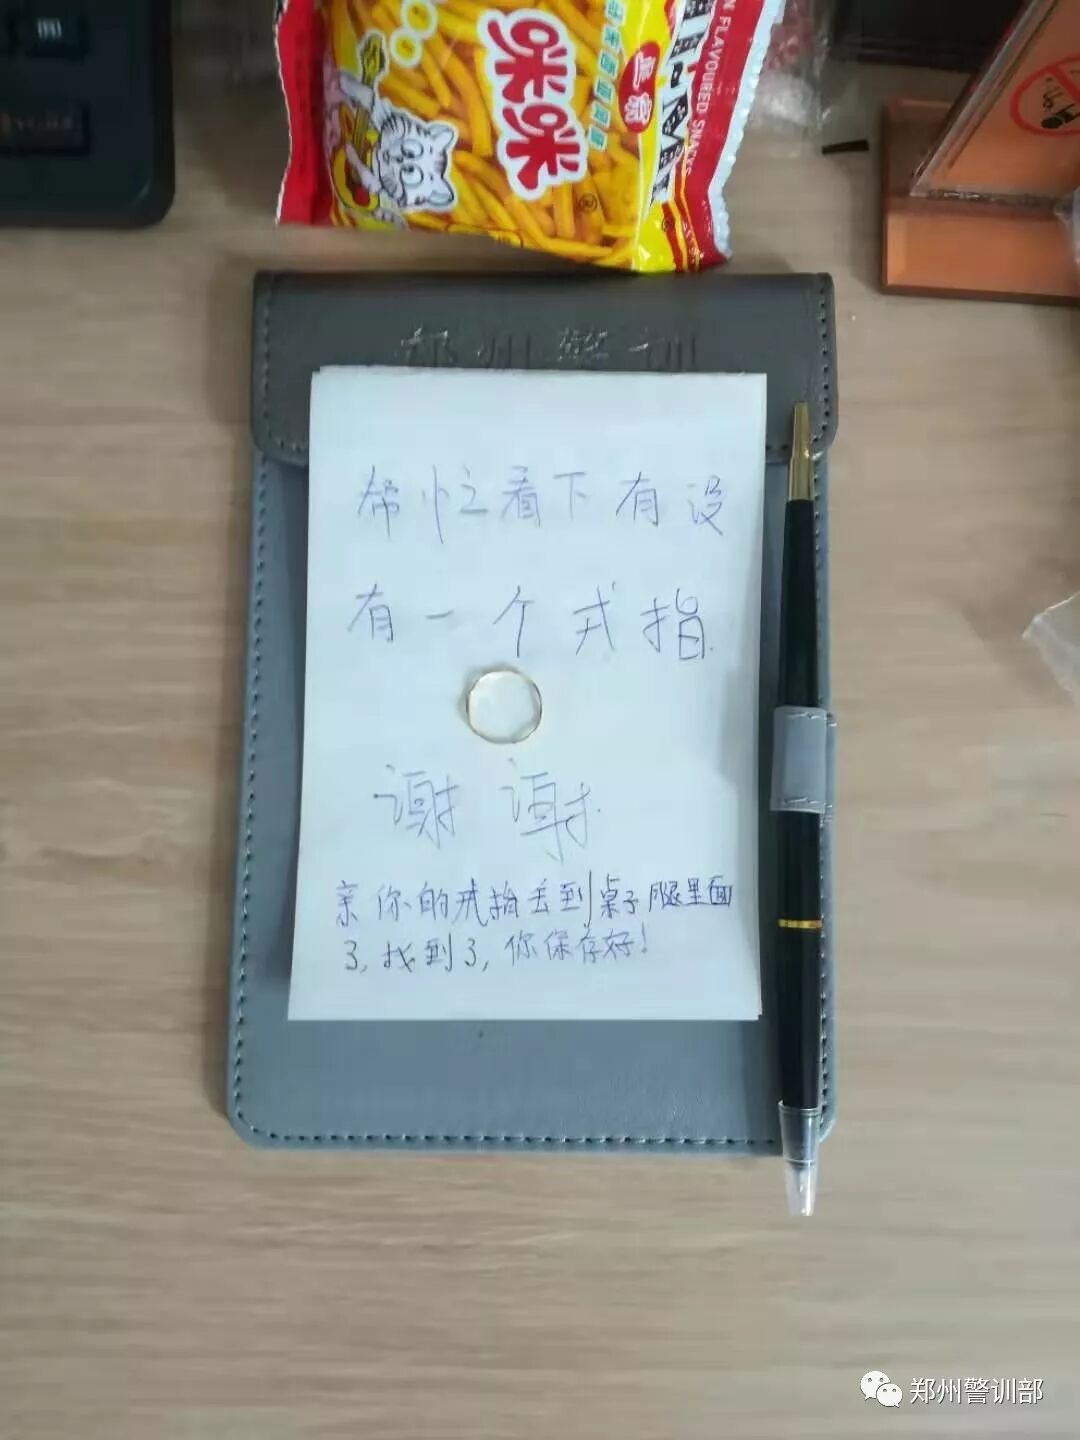 咪咪
FLAVOURED SNACKS
郑州警训
帮忙看下有没
有一个戒指
谢谢
亲你的戒指丢到桌子腿里面
了,找到了,你保存好!
郑州警训部